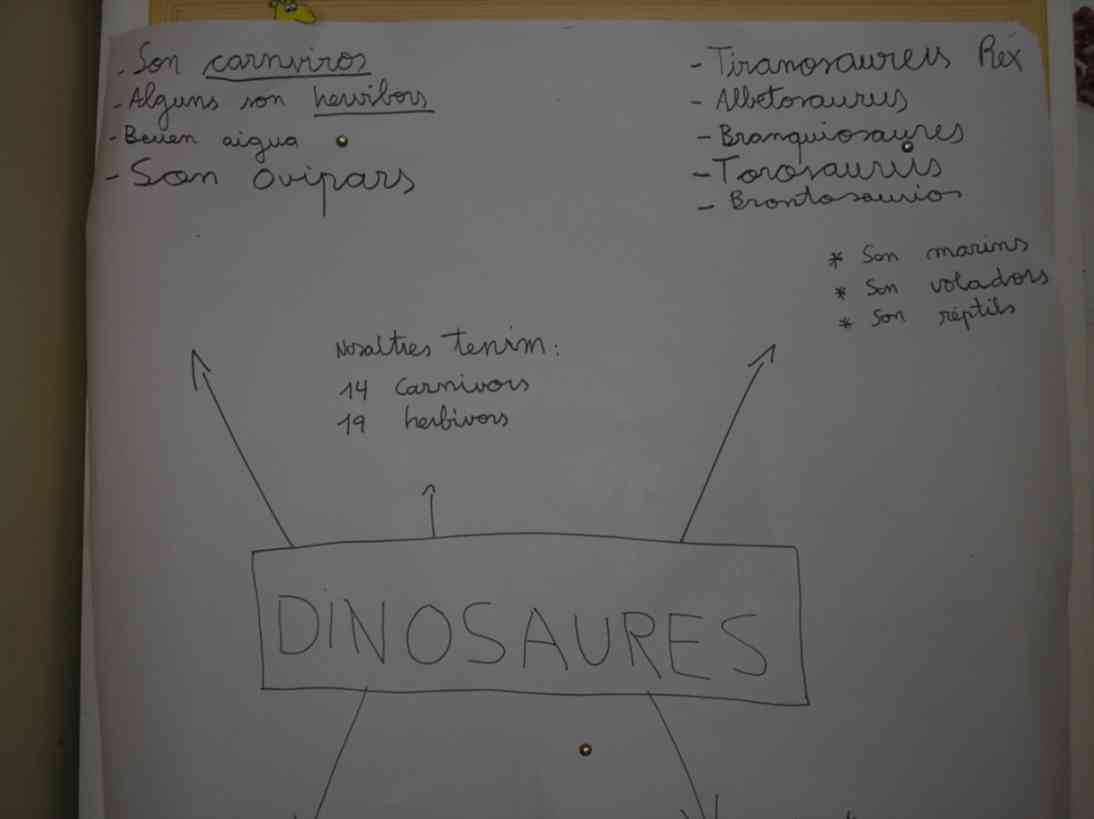 . Son carnviros
- Alguns son hervibors
- Beuen aigua
- Son ovipars
- Tiranosaureus Rex
- Albetosaurus
- Branquiosaures
- Torosaurus
- Brontosaurios
* Son marins
* Son voladors
* Son réptils
Nosaltres tenim:
14 Carnivors
19 herbivors
DINOSAURES